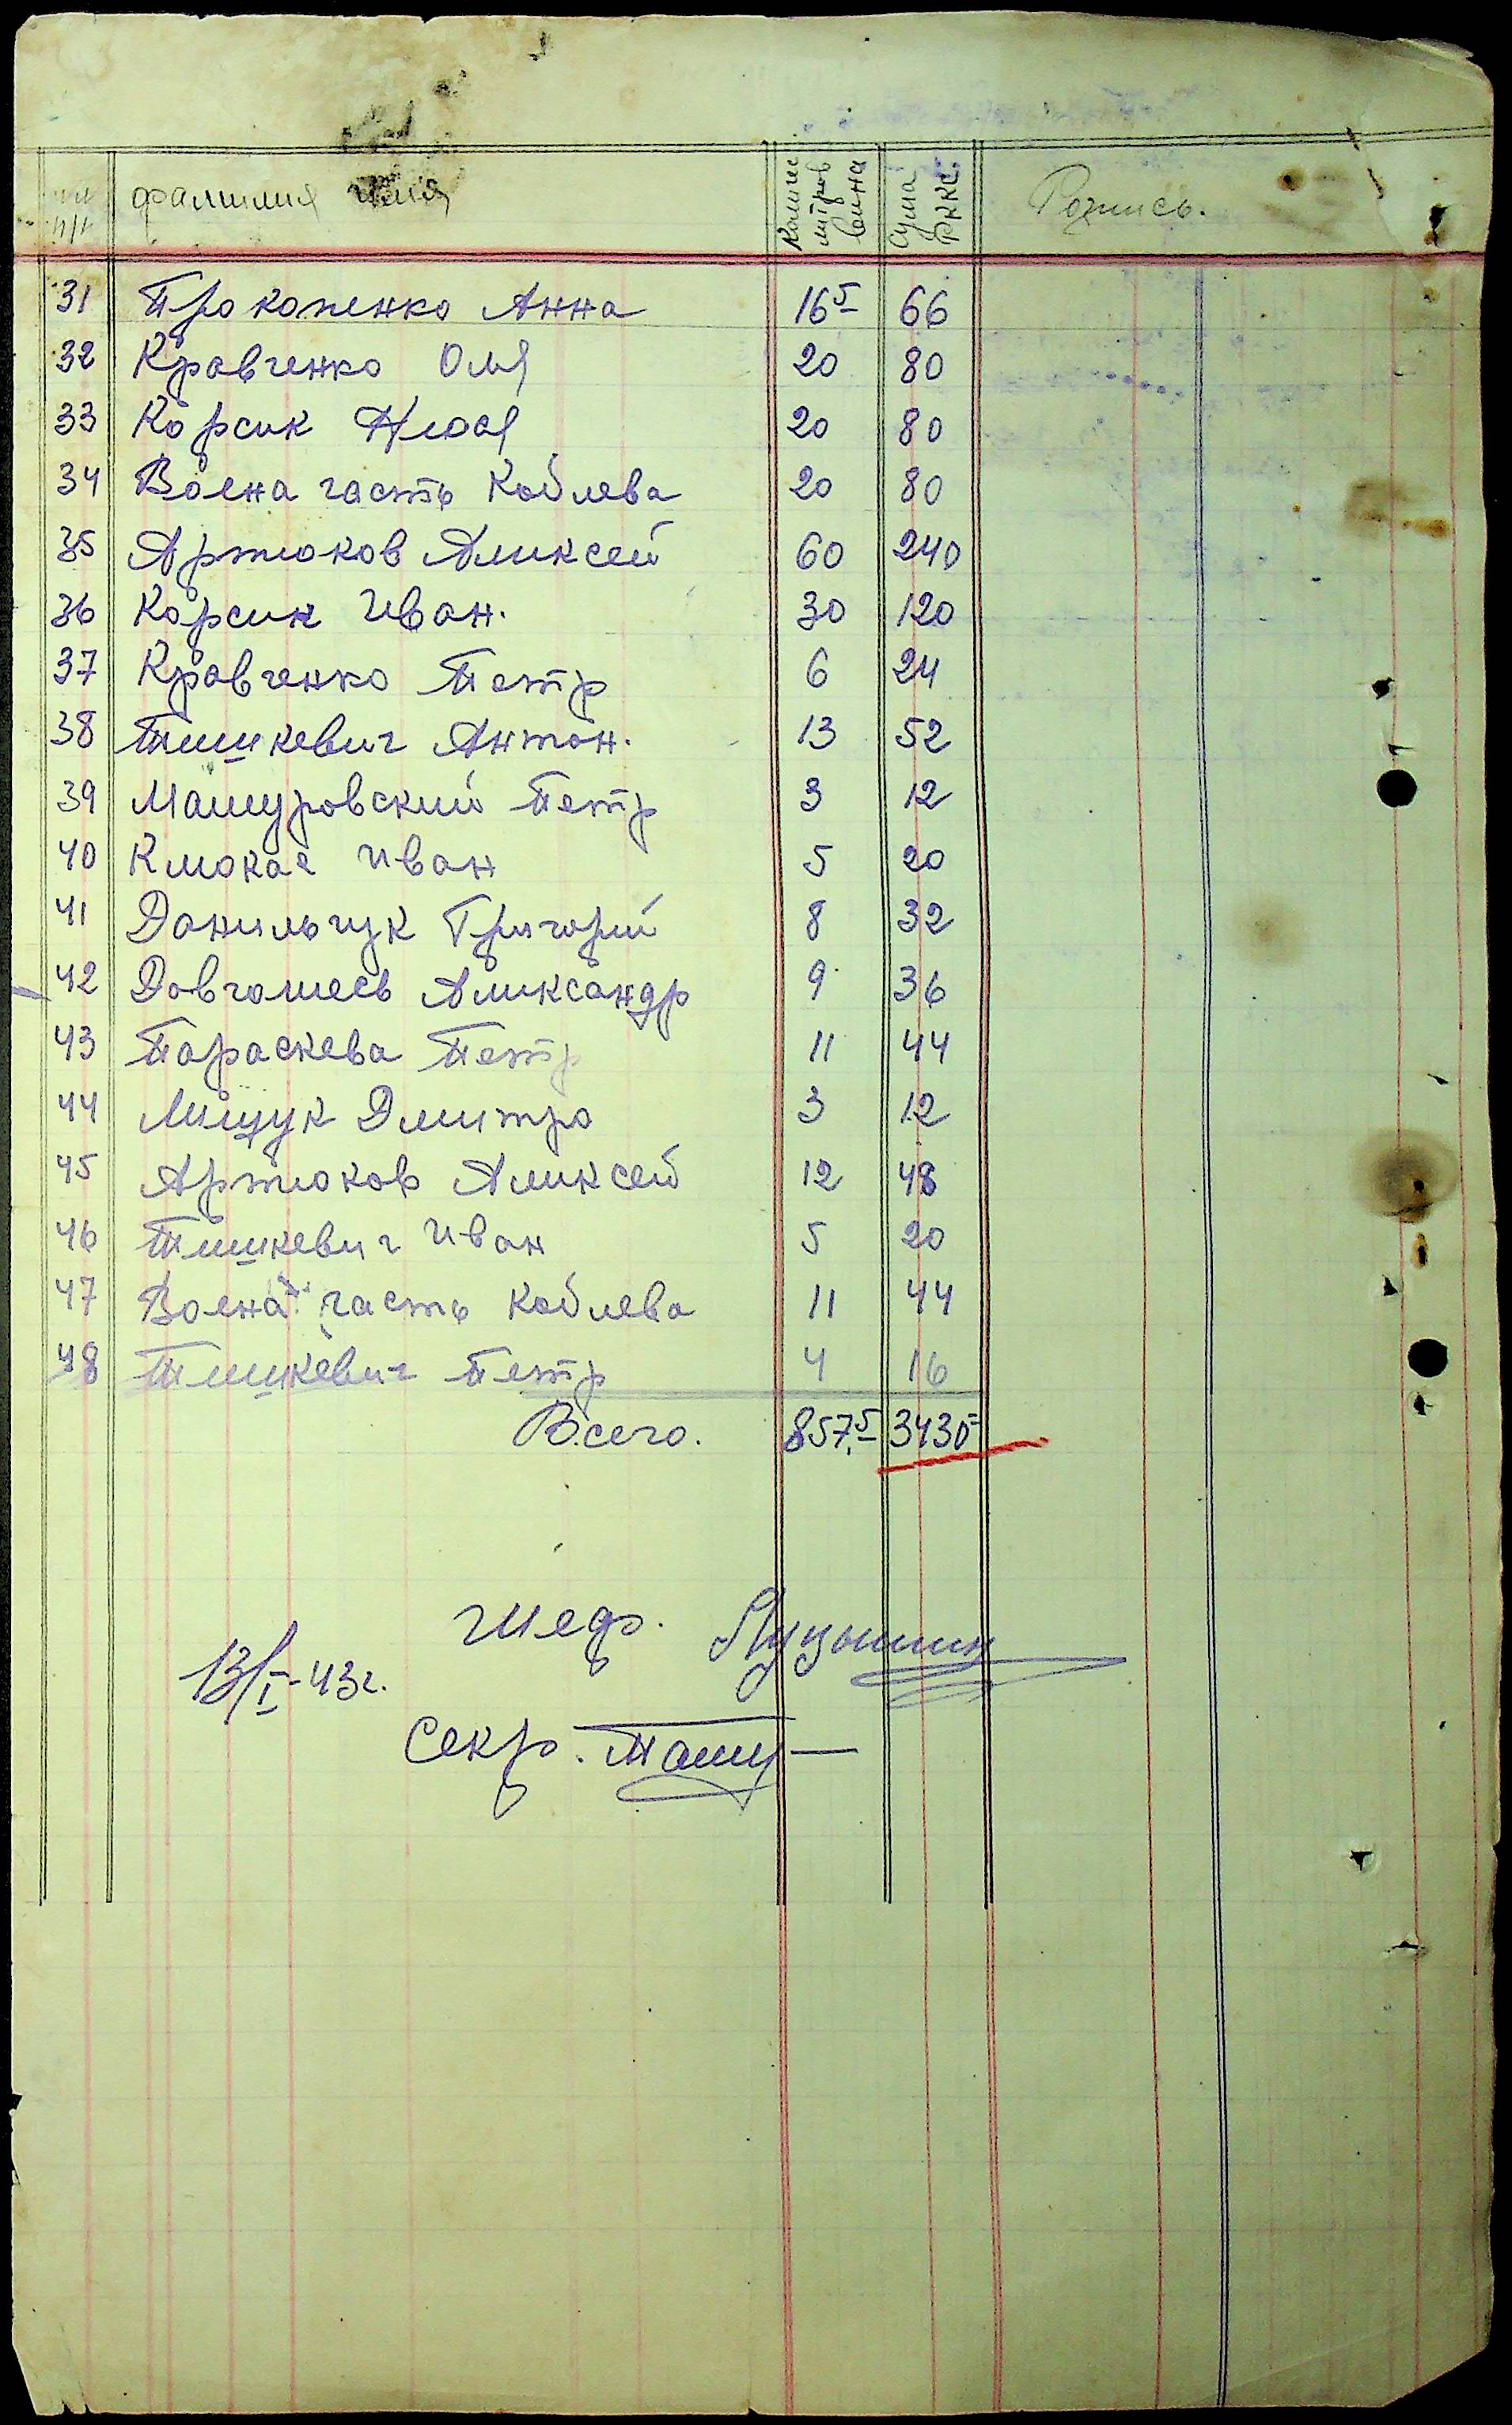 п/п фамилия имя Количе литров вина Сума РККС. Роспись.
31 Прокопенко Анна 16⁵ 66
32 Кравченко Оля 20 80
33 Корсик Нюся 20 80
34 Воена часть Коблева 20 80
35 Артюков Аликсей 60 240
36 Корсик Иван. 30 120
37 Кравченко Петр 6 24
38 Тишкевич Антон. 13 52
39 Машуровский Петр 3 12
40 Клюкас Иван 5 20
41 Данильчук Григорий 8 32
42 Довгошесь Аликсандр 9 36
43 Параскева Петр 11 44
44 Мищук Дмитро 3 12
45 Артюков Аликсей 12 48
46 Тишкевич Иван 5 20
47 Воена часть Коблева 11 44
48 Тишкевич Петр 4 16
Всего. 857,⁵ 3430=
Шеф.
13/I-43г.
Секр.